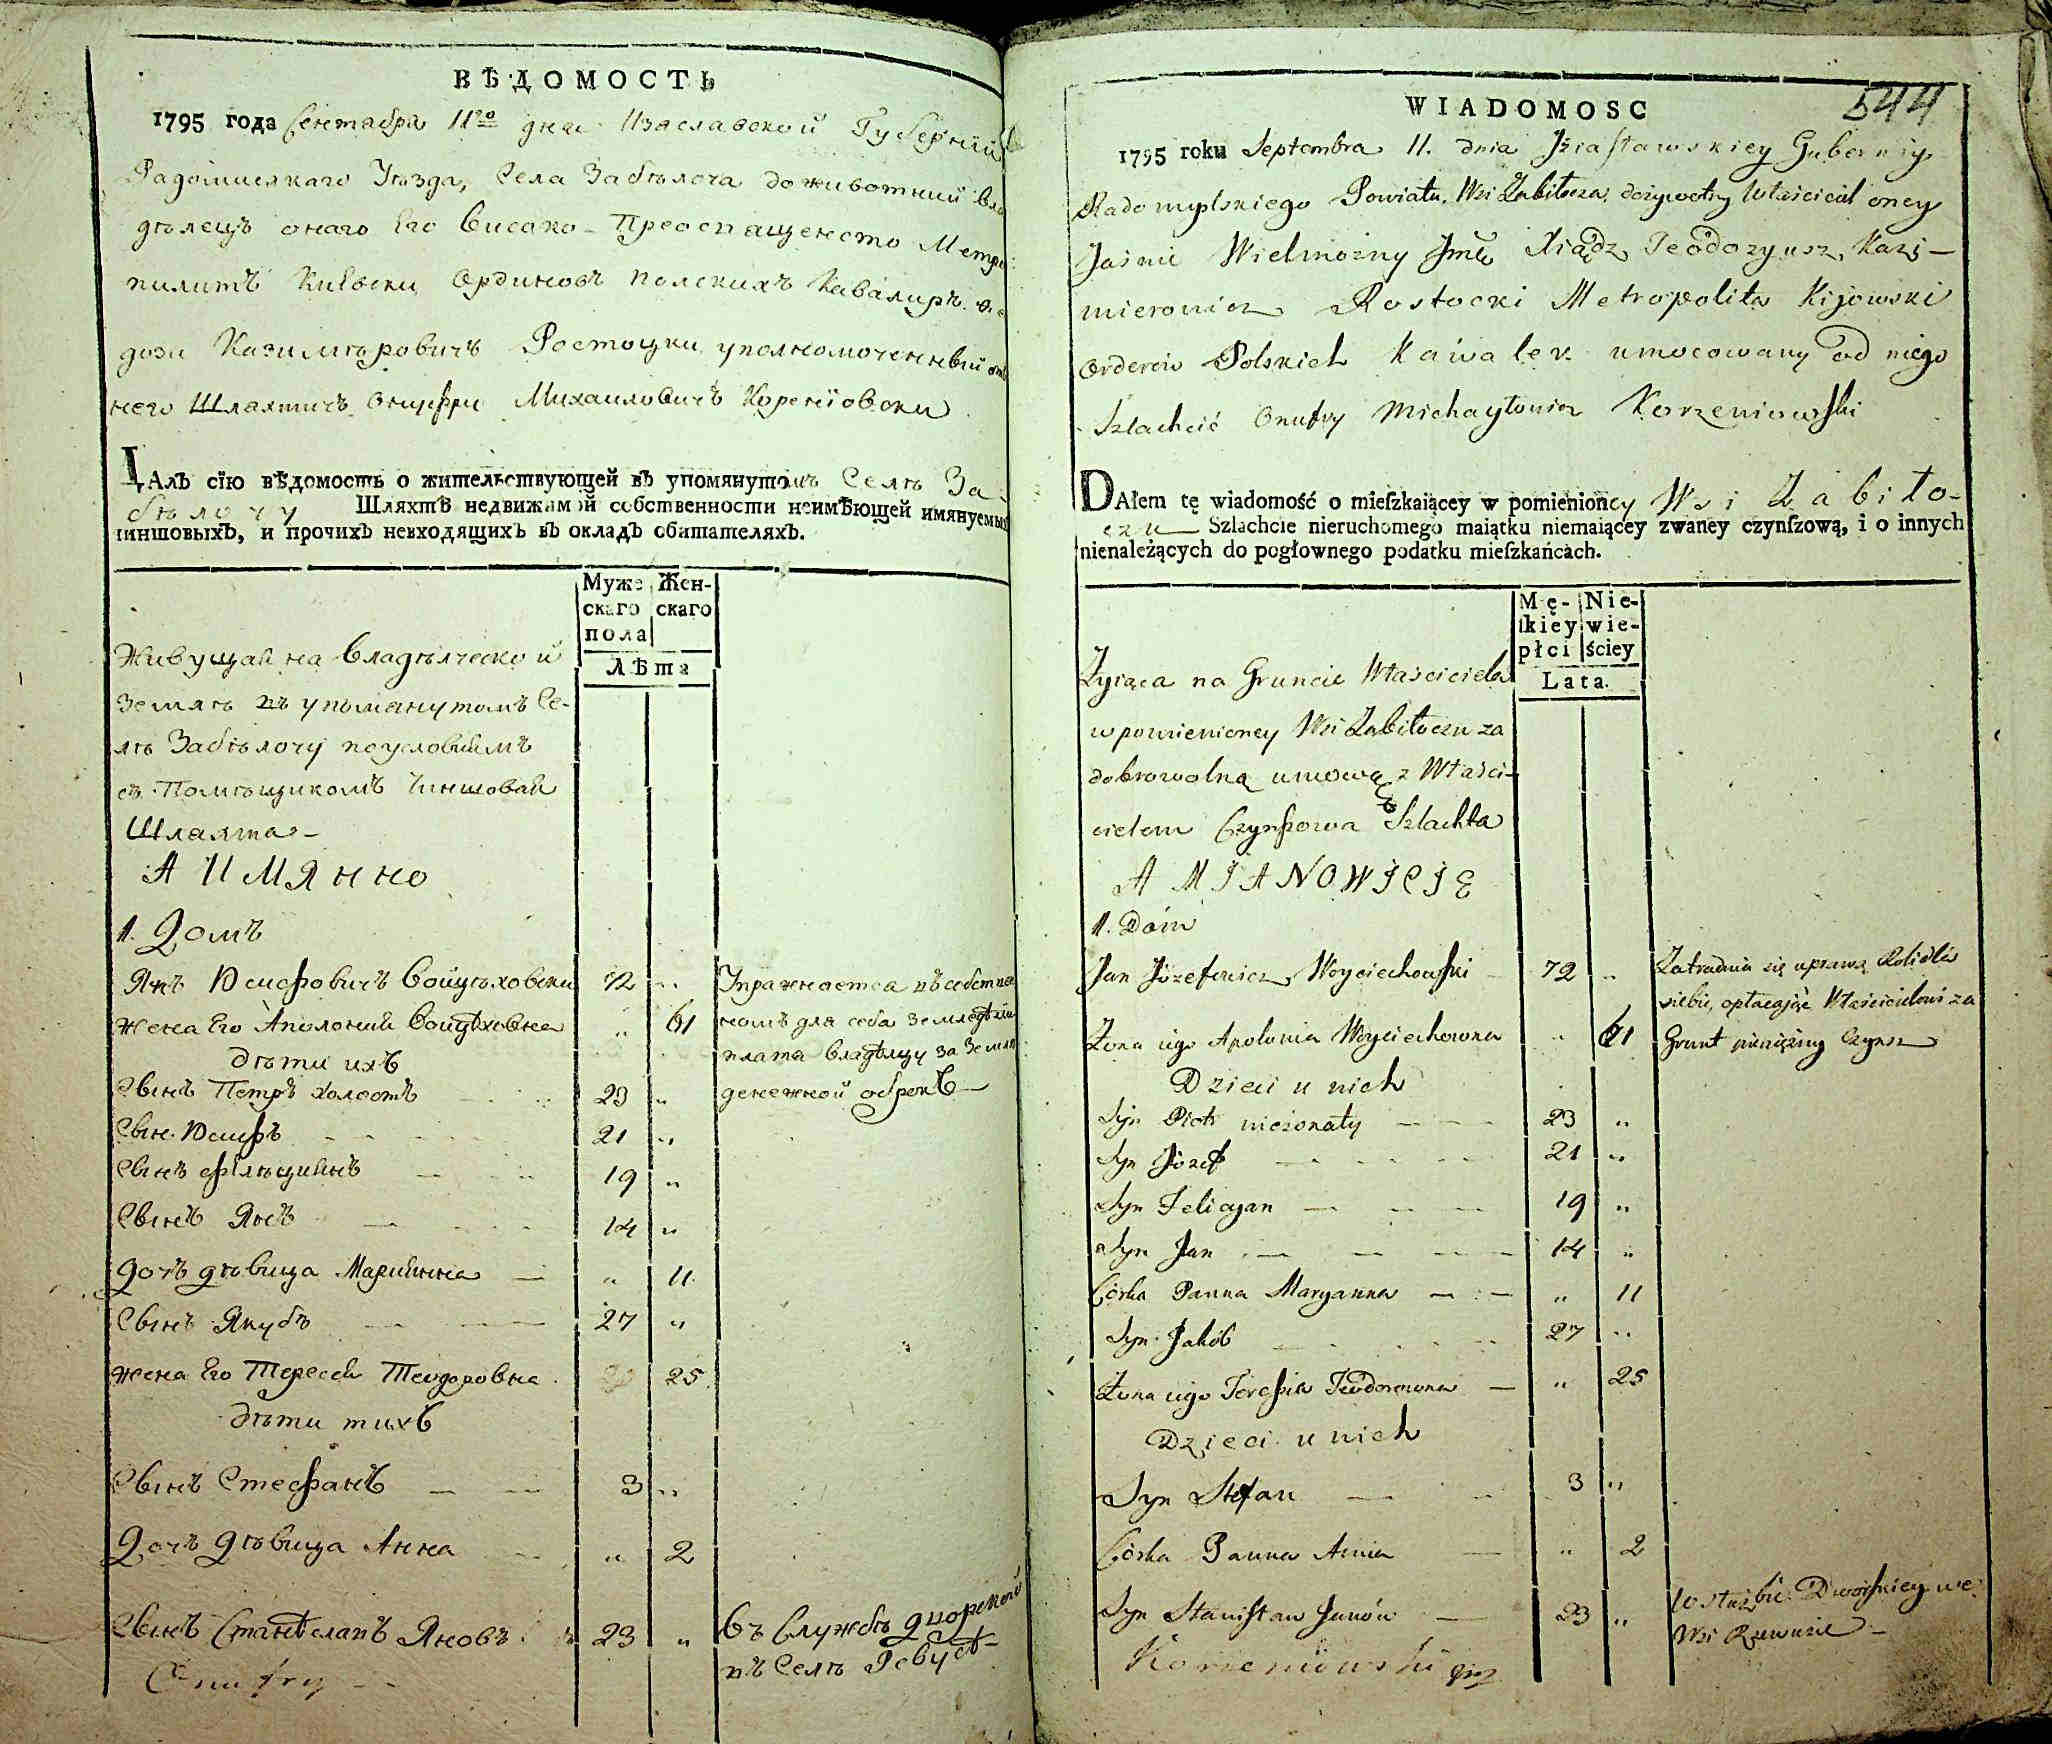 ВѢДОМОСТЬ
1795 года Сентабра 11го дня Изаславской Губерніи
Радомислкаго Уѣзда, Села Забѣлоча доживотний вла
дѣлецъ онаго Его Високо-Преосвященство Метро
пилитъ Киевски Ординовъ полскихъ Кавалиръ Фео
дози Казимѣровичъ Ростоцки уполномоченный отъ
него Шляхтичъ Онуфри Михаиловичъ Корениовски
ДАлъ сїю вѣдомость о жительствующей въ упомянутомъ Селѣ За-
бѣлочу Шляхтѣ недвижимой собственности неимѣющей имянуемыхъ
чиншовыхъ, и прочихъ невходящихъ въ окладъ обитателяхъ.
Муже Жен-
скаго скаго
пола
Лѣта
Живущая на Владѣлческой
Землѣ въ упомянутомъ Се-
лѣ Забѣлочу поусловиямъ
съ Помѣщикомъ Чиншовая
Шляхта-
А ИМЯННО
1. Домъ
Янъ Юсифовичъ Войцѣховски 72 „ Упражнается въ собствен
жена Его Аполония Войцѣховна „ 61 номъ для себа земледѣлии
дѣти ихъ плата владѣлцу за Землю
Сынъ Петръ холостъ 23 „ денежной оброкъ
Сын Юсифъ 21 „
Сынъ Фѣлѣциянъ 19 „
Сынъ Янъ 14 „
Дочъ дѣвица Марианна „ 11
Сынъ Якубъ 27 „
жена Его Тересса Теодоровна 25
дѣти тихъ
Сынъ Стефанъ 3 „
Дочъ дѣвица Анна „ 2
Сынъ Станѣславъ Яновъ 23 „ Въ Службѣ дворской
въ Селѣ
Onufry
544
WIADOMOSC
1795 roku Septembra 11. dnia Jziasławskiey Gubernij
Radomyslskiego Powiatu, Wsi Zabiłocza, dożywotny Właściciel oney
Jaśnie Wielmożny Jmć Xiądz Teodozyusz, Kazi-
mierowicz Rostocki Metropolita Kijowski
Orderów Polskich Kawaler umocowany od niego
Szlachcić Onufry Michayłowicz Korzeniowski
DAłem tę wiadomość o mieſzkaiącey w pomienioncy Wsi Zabiło-
czu Szlachcie nieruchomego maiątku niemaiącey zwaney czynſzową, i o innych
nienależących do pogłownego podatku mieſzkańcach.
Mę- Nie-
ſkiey wie-
płci ściey
Lata.
Żyiąca na Gruncie Właściciela
w pomienioney Wsi Zabiłoczu za
dobrowolną umową z Właści-
cielem Czynszowa Szlachta
A MJANOWJCJE
1. Dóm
Jan Józefowicz Woyciechowski 72 „ Zatrudnia się uprawą Roli dla
siebie, opłacając Właścicielowi za
Żona iego Apolonia Woyciechowna „ 61 Grunt pieniężny Czynsz
Dzieci u nich
Syn Piotr nieżonaty 23 „
Syn Józef 21 „
Syn Felicyan 19 „
Syn Jan 14 „
Córka Panna Maryanna „ 11
Syn Jakób 27 „
Żona iego Teressa Teodorowna „ 25
Dzieci u nich
Syn Stefan 3 „
Córka Panna Anna „ 2
Syn Stanisław Janów 23 „ W służbie Dworskiey we
Wsi
Korzeniowski